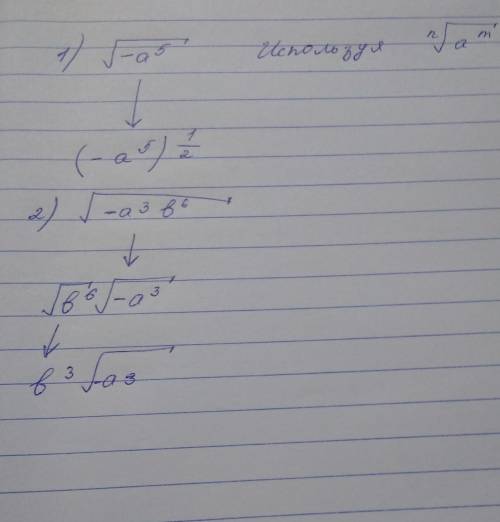 1) √-a⁵ Используя ⁿ√aᵐ
↓
(-a⁵)^½
2) √-a³ b⁶
↓
√b⁶ √-a³
↓
b³ √-a3